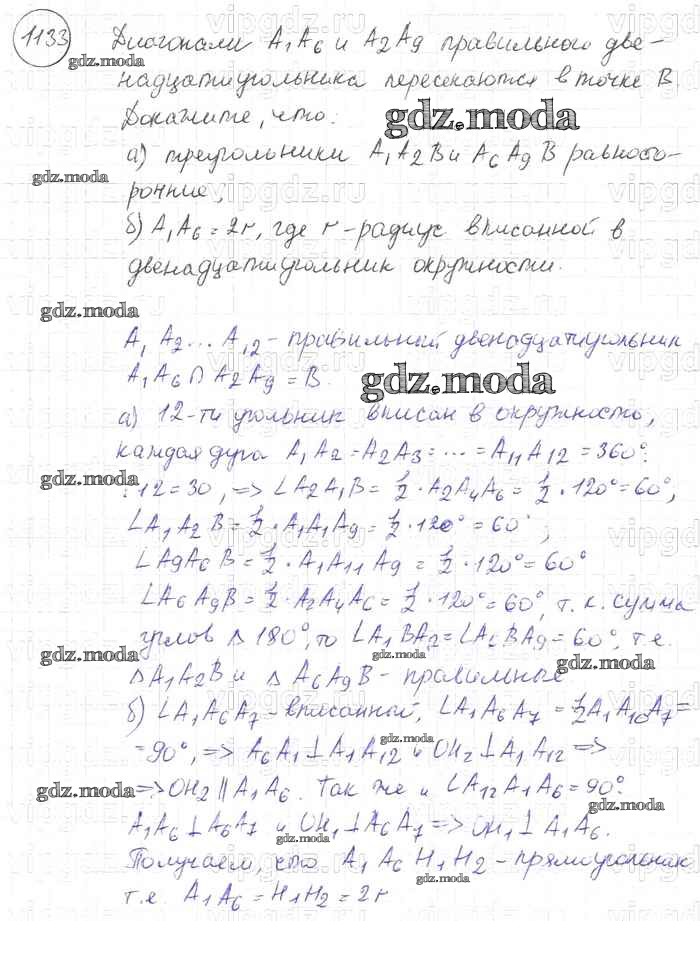 1133 Диагонали A₁A₆ и A₂A₉ правильного две-
надцатиугольника пересекаются в точке B.
Докажите, что:
а) треугольники A₁A₂B и A₆A₉B равносто-
ронние;
б) A₁A₆ = 2r, где r - радиус вписанной в
двенадцатиугольник окружности.
A₁ A₂... A₁₂ - правильный двенадцатиугольник
A₁A₆ ∩ A₂A₉ = B.
а) 12-ти угольник вписан в окружность,
каждая дуга A₁A₂ = A₂A₃ = ... = A₁₁A₁₂ = 360°:
:12 = 30, => ∠A₂A₁B = 1/2 · A₂A₄A₆ = 1/2 · 120° = 60°,
∠A₁A₂B = 1/2 · A₁A₁A₉ = 1/2 · 120° = 60°;
∠A₉A₆B = 1/2 · A₁A₁₁A₉ = 1/2 · 120° = 60°
∠A₆A₉B = 1/2 · A₂A₄A₆ = 1/2 · 120° = 60°, т.к. сумма
углов ∆ 180°, то ∠A₁BA₂ = ∠A₆BA₉ = 60°, т.е.
∆A₁A₂B и ∆A₆A₉B - правильные
б) ∠A₁A₆A₇ - вписанный, ∠A₁A₆A₇ = 1/2A₁A₁₀A₇ =
= 90°, => A₆A₁ ⊥ A₁A₁₂ и OH₂ ⊥ A₁A₁₂ =>
=> OH₂ ∥ A₁A₆. Так же и ∠A₁₂A₁A₆ = 90°.
A₁A₆ ⊥ A₆A₇ и OH₁ ⊥ A₆A₇ => OH₁ ⊥ A₁A₆.
Получаем, что A₁A₆H₁H₂ - прямоугольник
т.е. A₁A₆ = H₁H₂ = 2r
gdz.moda
gdz.moda
gdz.moda
gdz.moda
gdz.moda
gdz.moda
gdz.moda
gdz.moda
gdz.moda
gdz.moda
gdz.moda
gdz.moda